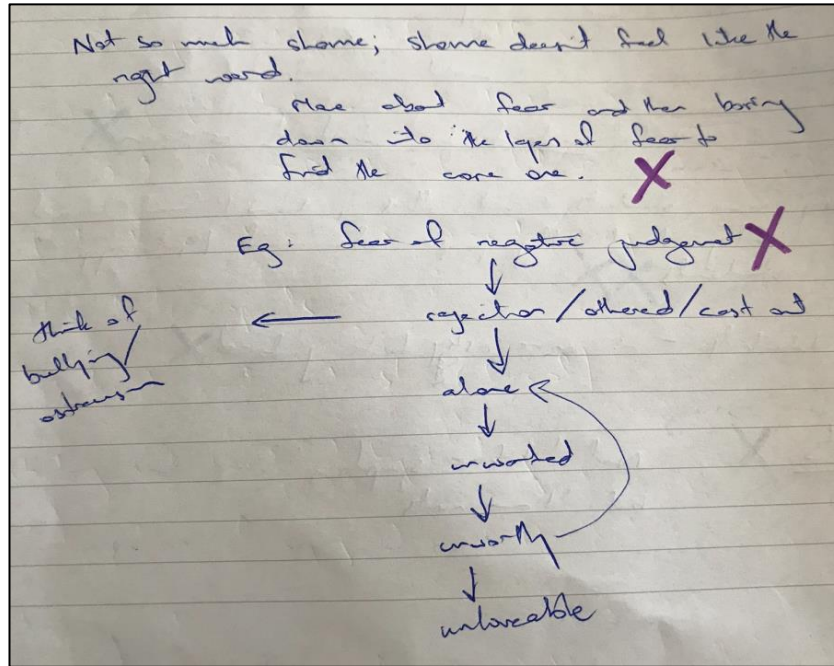 Not so much shame; shame doesn't feel like the
right word.
More about fear and then boring
down into the layers of fear to
find the core one. X
Eg: fear of negative judgement X
↓
← rejection / othered / cast out
think of
bullying /
ostracism
↓
alone
↓
unwanted
↓
unworthy
↓
unloveable